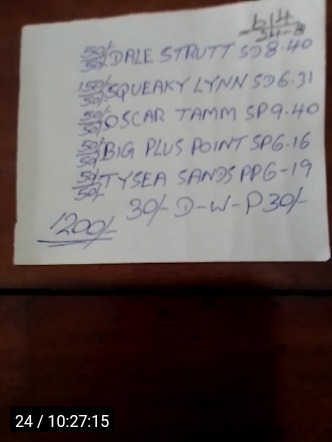 614
50/- DALE STRUTT SD 8.40
50/-
150/- SQUEAKY LYNN SD 6.31
50/-
50/- OSCAR TAMM SP 9.40
50/-
50/- BIG PLUS POINT SP 6.16
50/-
50/- TYSEA SANDS PP 6-19
50/-
30/- D-W-P 30/-
1200/-
24 / 10:27:15